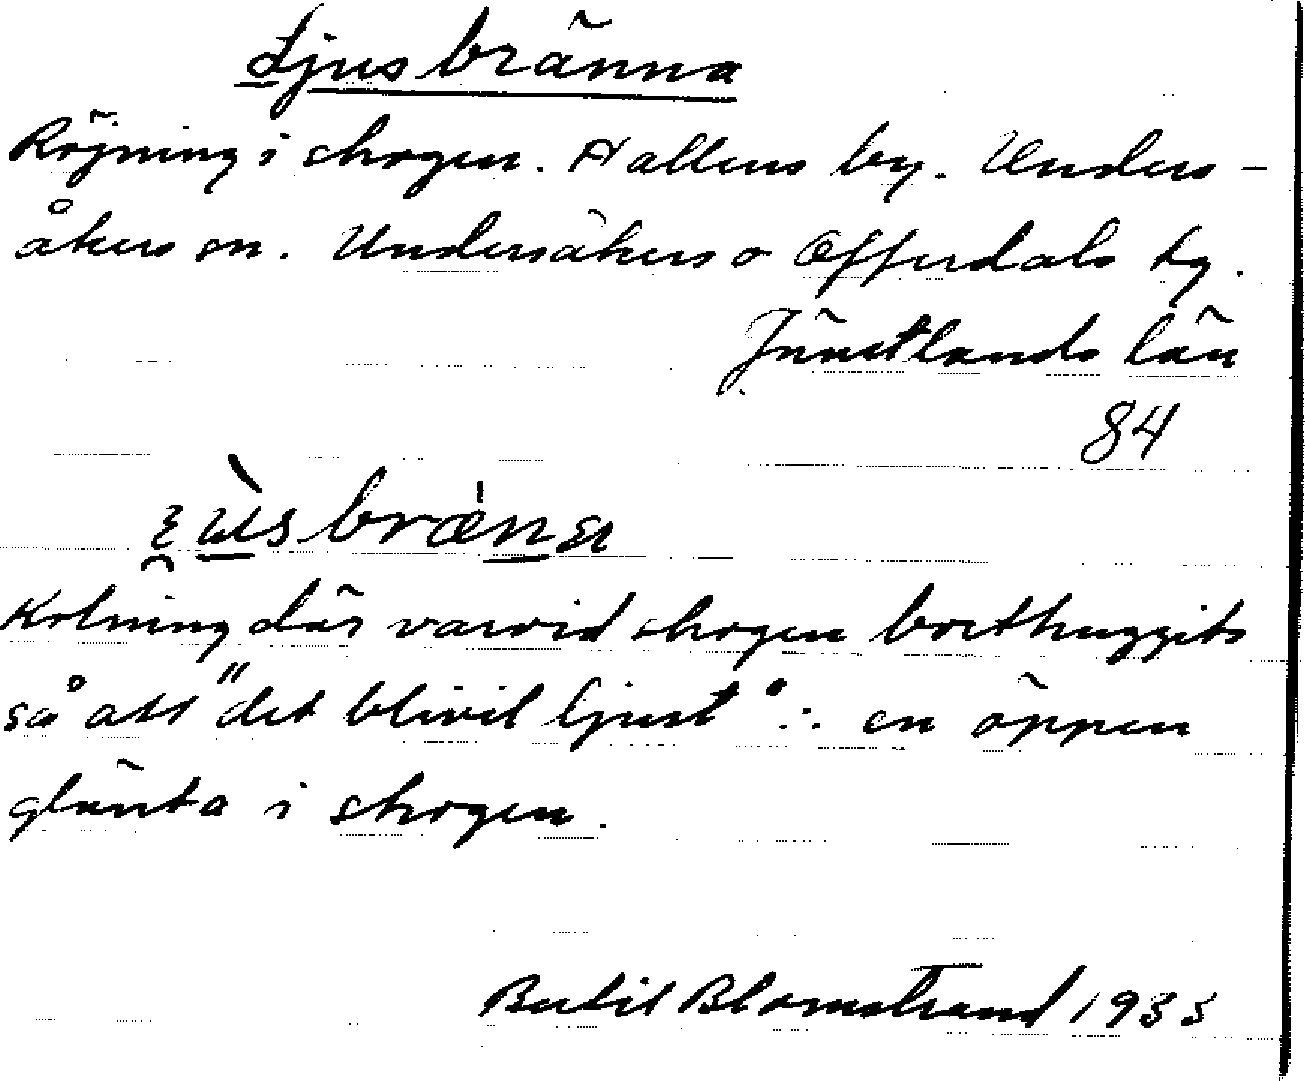 Ljusbränna
Röjning i skogen. Hallens by. Unders-
åkers sn. Undersåkers o Offerdals tg.
Jämtlands län
84
Kolning där varvid skogen borthuggits
så att "det blivit ljust" ∴ en öppen
glänta i skogen.
Bertil Blomstrand 1933